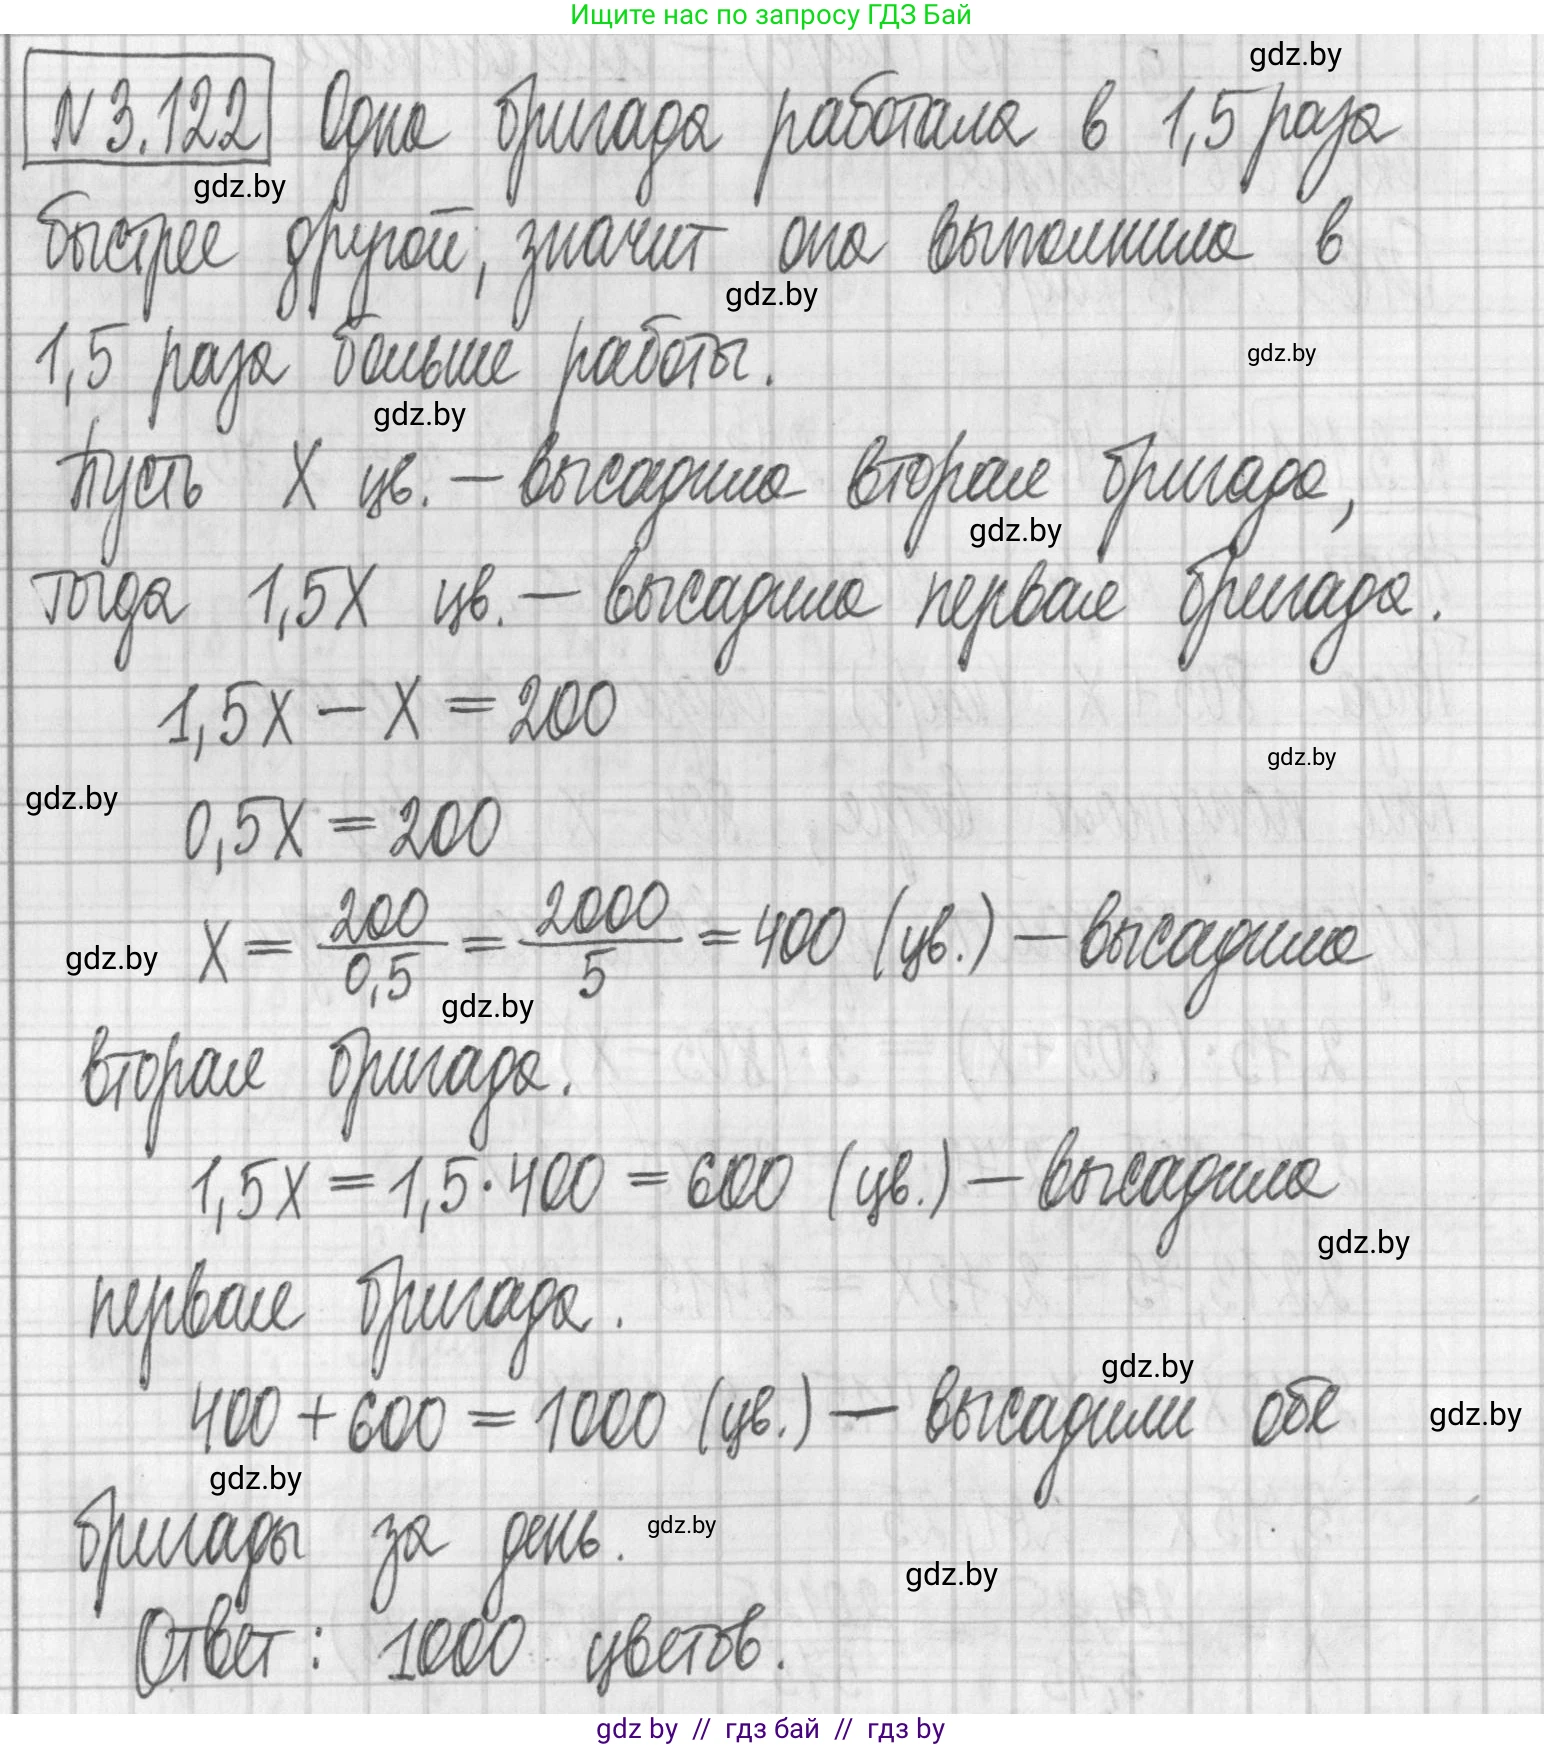 Ищите нас по запросу ГДЗ Бай
gdz.by
N 3.122 Одна бригада работала в 1,5 раза
gdz.by
быстрее другой, значит она выполнила в
gdz.by
1,5 раза больше работы.
gdz.by
gdz.by
Пусть X цв. – высадила вторая бригада,
gdz.by
тогда 1,5X цв. – высадила первая бригада.
1,5X – X = 200
gdz.by
gdz.by
0,5X = 200
X = 200/0,5 = 2000/5 = 400 (цв.) – высадила
gdz.by
gdz.by
вторая бригада.
1,5X = 1,5·400 = 600 (цв.) – высадила
gdz.by
первая бригада.
gdz.by
400 + 600 = 1000 (цв.) – высадили обе
gdz.by
gdz.by
бригады за день.
gdz.by
gdz.by
Ответ: 1000 цветов.
gdz by // гдз бай // гдз by